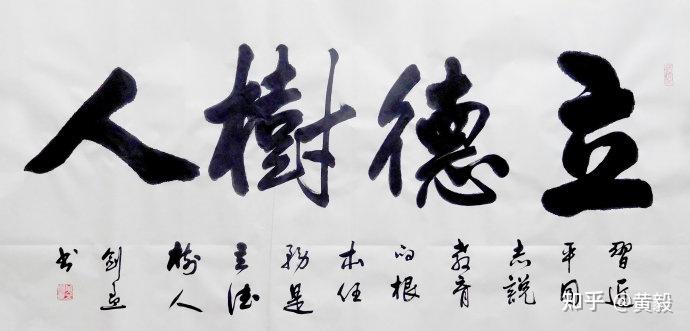 立德樹人
習近
平同
志説
教育
的根
本任
務是
立德
樹人
剑
书
知乎 @黄毅